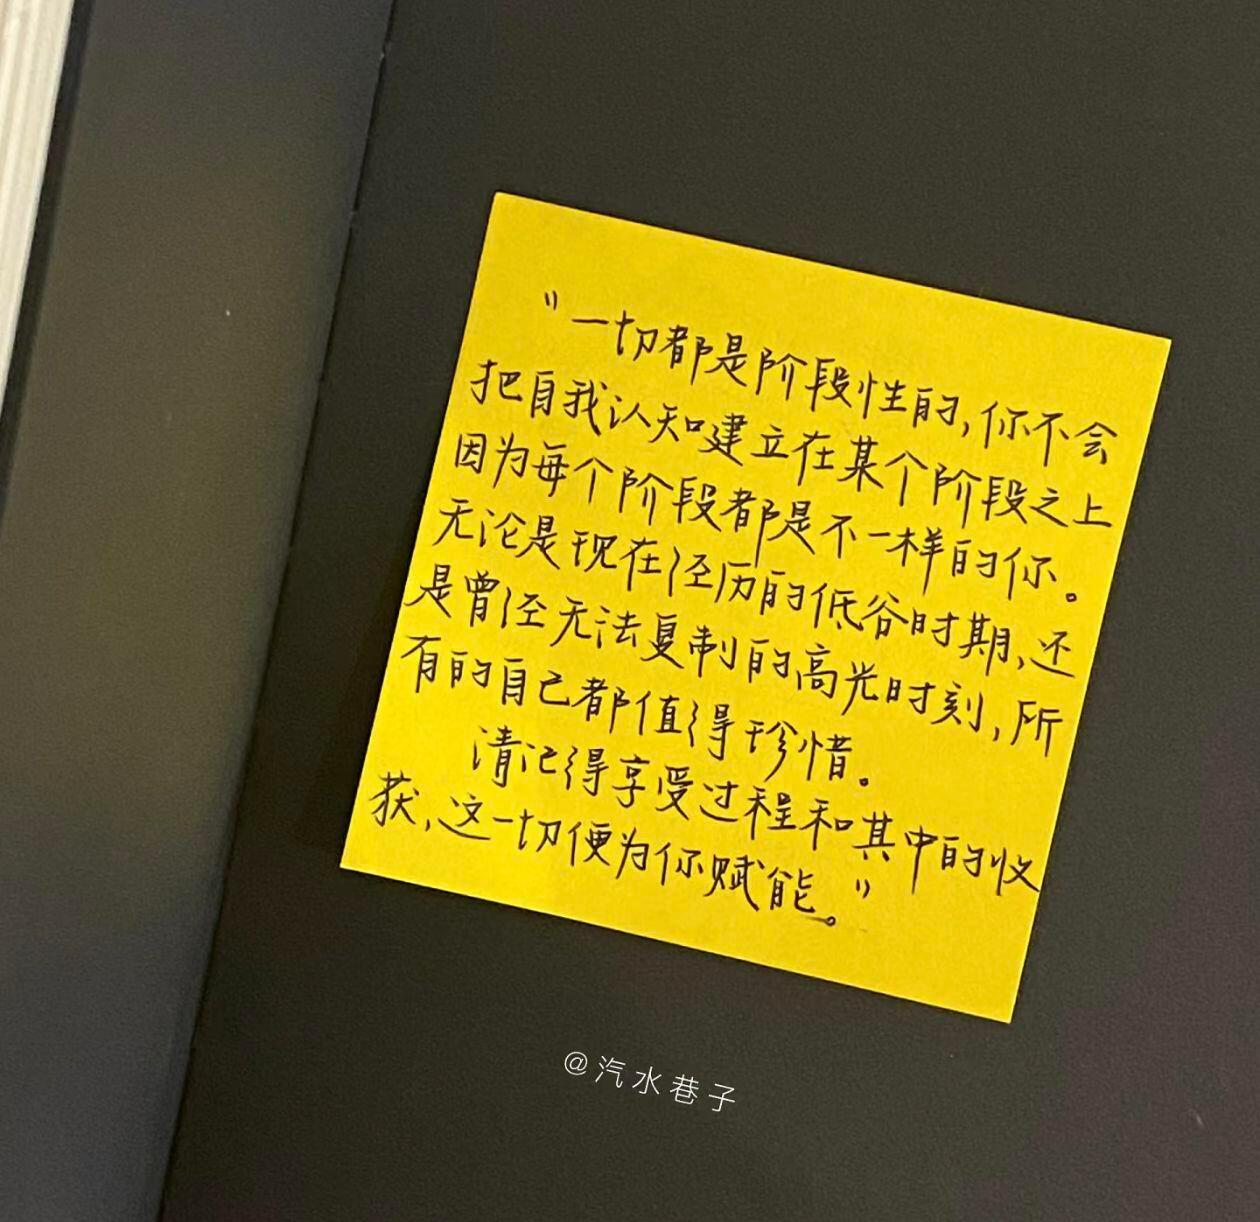 "一切都是阶段性的,你不会
把自我认知建立在某个阶段之上
因为每个阶段都是不一样的你。
无论是现在经历的低谷时期,还
是曾经无法复制的高光时刻,所
有的自己都值得珍惜。
请记得享受过程和其中的收
获,这一切便为你赋能。"
@汽水巷子